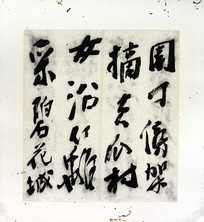 園丁傍架
摘黃瓜村
女沿籬
采碧花城